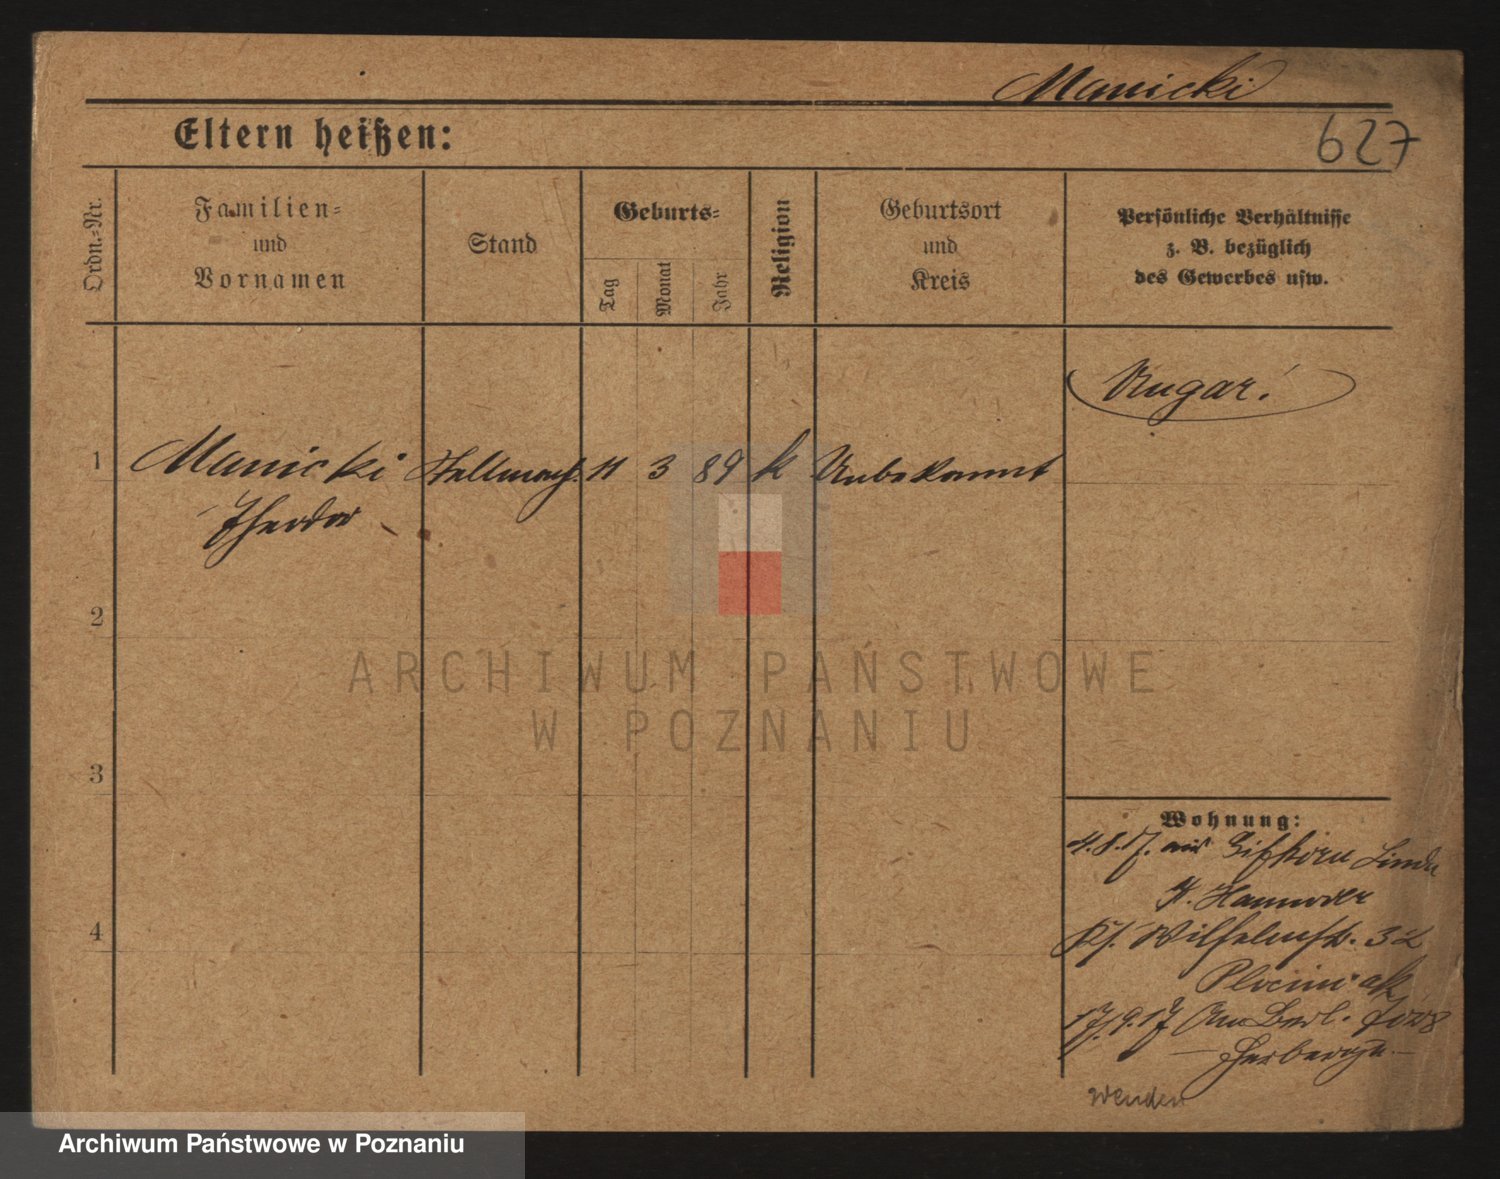 Manicki
627
Eltern heißen:
Ordn.-Nr.
Familien-
und
Vornamen
Stand
Geburts-
Tag
Monat
Jahr
Religion
Geburtsort
und
Kreis
Persönliche Verhältnisse
z. B. bezüglich
des Gewerbes usw.
Ungar!
1 Manicki Stellmach. 11 3 89 k Unbekannt
Theodor
2
3
4
Wohnung:
4.8.17. aus Gifhorn
Hannover
Wilhelmstr. 32
Plociniak
17.9.17 Am Berl. Tor 8
Herberge
wenden
ARCHIWUM PAŃSTWOWE
W POZNANIU
Archiwum Państwowe w Poznaniu